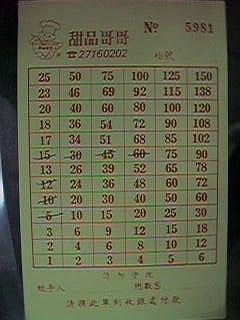 甜品哥哥 № 5981
☎27160202 枱號
25 50 75 100 125 150
23 46 69 92 115 138
20 40 60 80 100 120
18 36 54 72 90 108
17 34 51 68 85 102
15 30 45 60 75 90
13 26 39 52 65 78
12 24 36 48 60 72
10 20 30 40 50 60
5 10 15 20 25 30
3 6 9 12 15 18
2 4 6 8 10 12
1 2 3 4 5 6
經手人 總數$
請携此單到收銀處付款